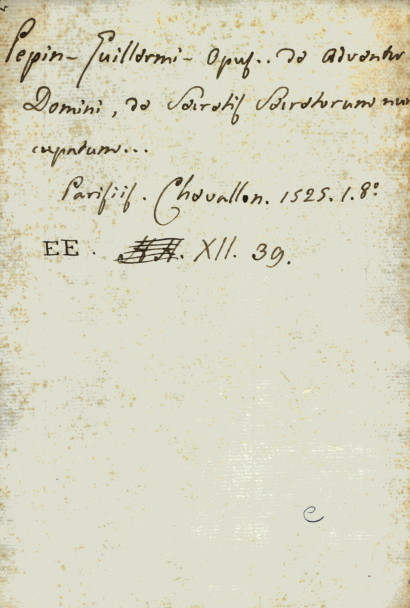 Pepin - Guillermi - Opus.. de Adventu
Domini, de Secretis Secretorum nun
cupatum...
Parisiis. Chevallon. 1525. 1. 8°
EE. XII. 39.
e